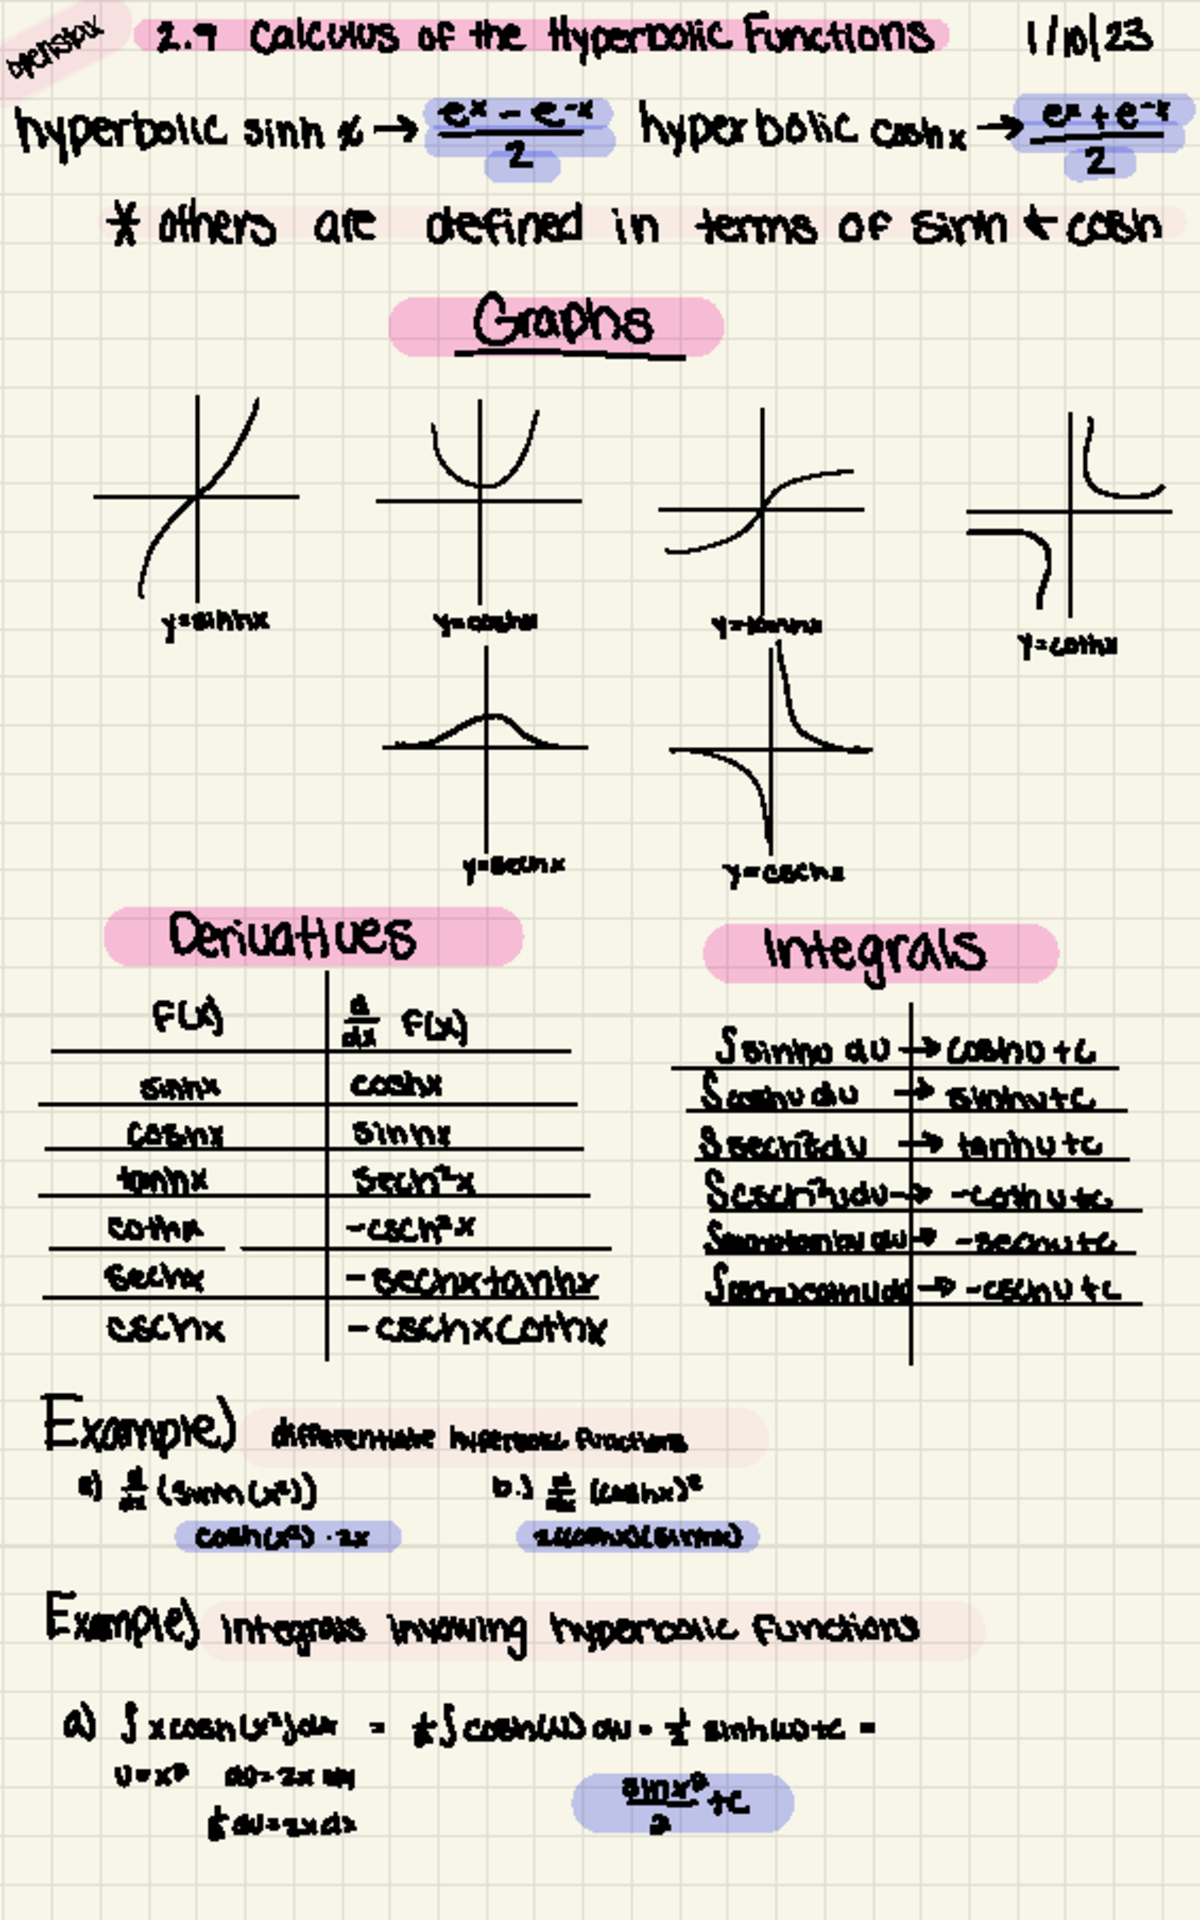 openstax 2.9 Calculus of the Hyperbolic Functions 1/10/23
hyperbolic sinh x → (e^x - e^-x)/2 hyperbolic cosh x → (e^x + e^-x)/2
* others are defined in terms of sinh & cosh
Graphs
y=sinhx y=coshx y=tanhx y=cothx
y=sechx y=cschx
Derivatives
F(x) d/dx F(x)
sinhx coshx
coshx sinhx
tanhx sech²x
cothx -csch²x
sechx -sechxtanhx
cschx -cschxcothx
Integrals
∫sinhu du → coshu+c
∫coshu du → sinhu+c
∫sech²udu → tanhu+c
∫csch²udu → -cothu+c
→ -sechu+c
→ -cschu+c
Example) differentiate hyperbolic functions
a) d/dx (sinh(x²)) b.) d/dx (coshx)²
cosh(x²)·2x 2(coshx)(sinhx)
Example) integrals involving hyperbolic functions
a) ∫xcosh(x²)dx = ½∫cosh(u) du = ½ sinh(u)+c =
u=x² du=2x
½du=2xdx
sinx²/2 +c